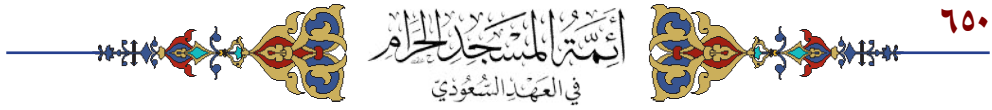 ٦٥٠
أَئِمَّةُ المَسْجِدِ الحَرَامِ
فِي العَهْدِ السُّعُودِيّ